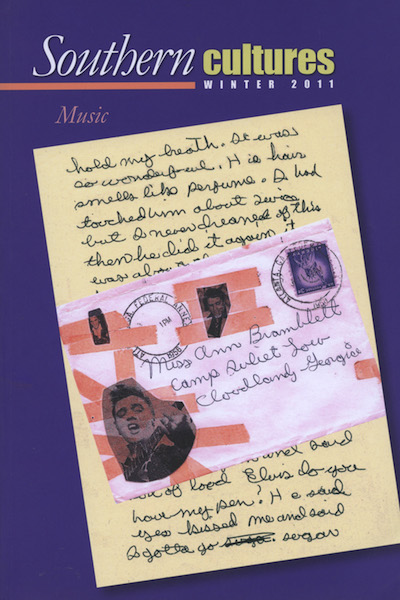 Southern cultures
WINTER 2011
Music
hold my breath. It was
so wonderful. His hair
smells like perfume. I had
touched him about twice
but I never dreamed of this
then he did it again, it
was
FEDERAL ANNEX
1 PM
ATLANTA
Miss Ann Bramblett
Camp Juliet Low
Cloudland, Georgia
and said
of food Elvis do you
have my pen? He said
yes kissed me and said
I gotta go sugar